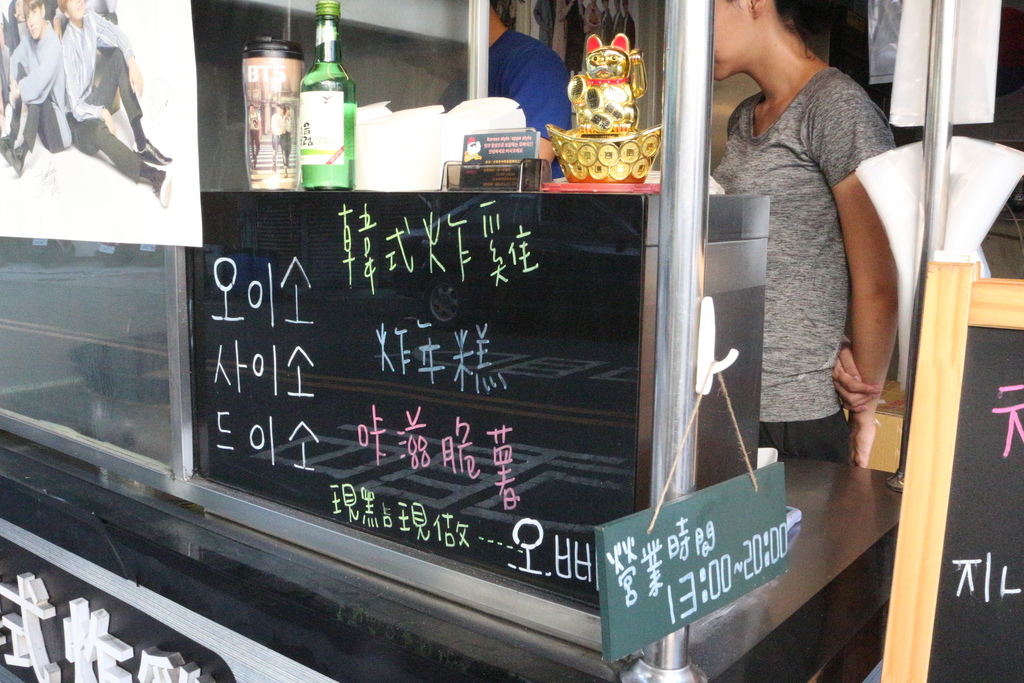 BTS
韓式炸雞
오이소
炸年糕
사이소
咔滋脆薯
도이소
現點現做----오빠
營業時間
13:00~20:00
지니
式炸雞